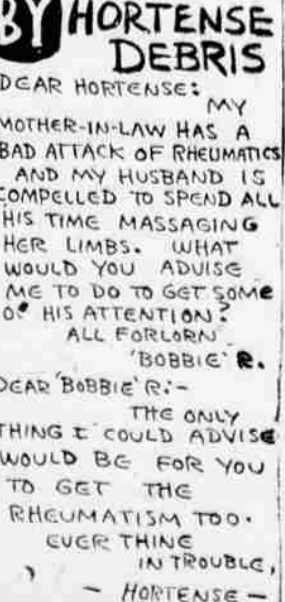 BY HORTENSE
DEBRIS
DEAR HORTENSE:
MY
MOTHER-IN-LAW HAS A
BAD ATTACK OF RHEUMATICS
AND MY HUSBAND IS
COMPELLED TO SPEND ALL
HIS TIME MASSAGING
HER LIMBS. WHAT
WOULD YOU ADVISE
ME TO DO TO GET SOME
OF HIS ATTENTION?
ALL FORLORN
'BOBBIE' R.
DEAR 'BOBBIE' R:-
THE ONLY
THING I COULD ADVISE
WOULD BE FOR YOU
TO GET THE
RHEUMATISM TOO.
EVER THINE
IN TROUBLE,
- HORTENSE -